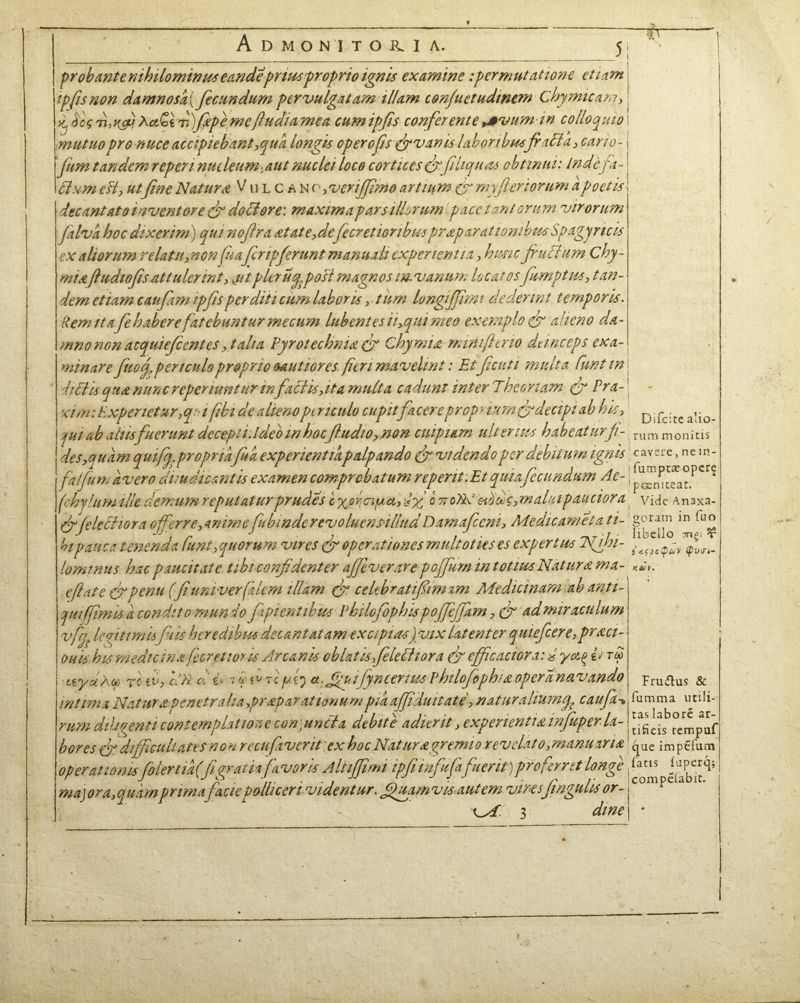 ADMONITORIA. 5
probante nihilominus eandē prius proprio ignis examine : permutatione etiam
ipsis non damnosâ ( secundum pervulgatam illam consuetudinem Chymicam,
δός τι, καὶ λαβέ τι ) sæpè me studia mea cum ipsis conferente, ovum in colloquio
mutuo pro nuce accipiebant, quâ longis operosis & vanis laboribus fractâ, cario-
sum tandem reperi nucleum, aut nuclei loco cortices & siliquas obtinui: Indè fa-
ctum est, ut sine Naturæ VULCANO, verissimo artium & mysteriorum à poetis
decantato inventore & doctore: maxima pars illorum ( pace tantorum virorum
salvâ hoc dixerim) qui nostra ætate, de secretioribus præparationibus Spagyricis
ex aliorum relatu, non sua scripserunt manuali experientia, hunc fructum Chy-
miæ studiosis attulerint, ut plerūq; post magnos in vanum locatos sumptus, tan-
dem etiam causam ipsis perditi cùm laboris, tùm longissimi dederint temporis.
Rem ita se habere fatebuntur mecum lubentes ii, qui meo exemplo & alieno da-
mno non acquiescentes, talia Pyrotechniæ & Chymiæ ministerio deinceps exa-
minare suoq; periculo proprio cautiores fieri mavelint: Et sicuti multa sunt in
dictis quæ nunc reperiuntur in factis, ita multa cadunt inter Theoriam & Pra-
xim: Experietur, qui sibi de alieno periculo cupit facere proprium & decipi ab his,
qui ab aliis fuerunt decepti. Ideò in hoc studio, non cuipiam ulterius habeatur fi-
des, quàm quisq; propriâ suâ experientiâ palpando & videndo per debitum ignis
falsum à vero diiudicantis examen comprobatum reperit. Et quia secundum Ae-
schylum ille demum reputatur prudēs ὁ χρήσιμα, οὐχ ὁ πολλὰ εἰδώς, malui pauciora
& selectiora offerre, animo subinde revoluens illud Damasceni, Medicamēta ti-
bi pauca tenenda sunt, quorum vires & operationes multoties es expertus. Nihi-
lominus hac paucitate tibi confidenter asseverare possum in totius Naturæ ma-
iestate & penu (si universalem illam & celebratißimam Medicinam ab anti-
quissimis à condito mundo sapientibus Philosophis possessam, & ad miraculum
vsq; legitimis suis heredibus decantatam excipias) vix latenter quiescere, præci-
puis his medicinæ secretioris Arcanis oblatis, selectiora & efficaciora: οὐ γὰρ ἐν τῷ
μεγάλῳ τὸ εὖ, ἀλλὰ ἐν τῷ εὖ τὸ μέγα. Qui syncerius Philosophiæ operā navando
intima Naturæ penetralia, præparationum pia assiduitate, naturaliumq; causa-
rum diligenti contemplatione coniuncta debitè adierit, experientiæ insuper la-
bores & difficultates non recusaverit ex hoc Naturæ gremio revelato, manuariæ
operationis solertiâ (si gratia favoris Altissimi ipsi infusa fuerit) proferret longè
majora, quàm prima facie polliceri videntur. Quamvis autem vires singulis or-
A 3 dine
Discite alio-
rum monitis
cavere, ne in-
sumptæ operę
pœniteat.
Vide Anaxa-
goram in suo
libello
Fructus &
summa utili-
tas laborē ar-
tificis tempusq́
que impēsum
satis superq;
compēsabit.